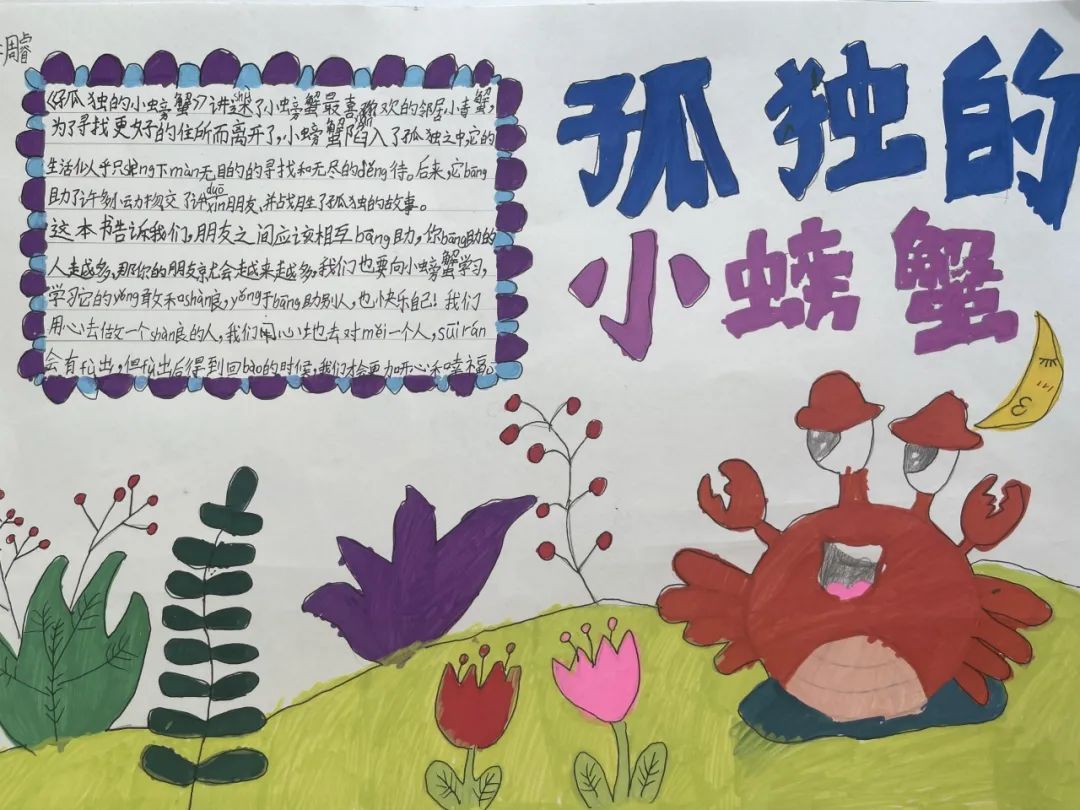 周睿
孤独的
小螃蟹
《孤独的小螃蟹》讲述了小螃蟹最喜欢的邻居小青蟹,
为了寻找更好的住所而离开了,小螃蟹陷入了孤独之中,它的
生活似乎只shèng下màn无目的的寻找和无尽的děng待。后来,它bāng
助了许多小动物,交了许duō xīn朋友,并战胜了孤独的故事。
这本书告诉我们,朋友之间应该相互bāng助,你bāng助的
人越多,那你的朋友就会越来越多,我们也要向小螃蟹学习,
学习它的yǒng敢和shàn良,yǒng于bāng助别人,也快乐自己!我们
用心去做一个shàn良的人,我们用心地去对měi一个人,suī rán
会有fù出,但fù出后得到回bào的时候,我们才会更加开心和幸福。